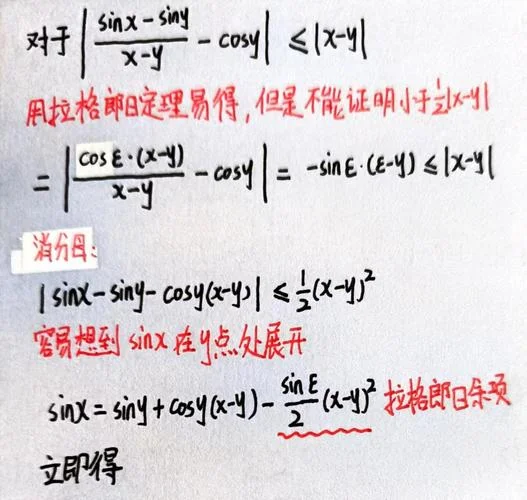 对于 | (sinx-siny)/(x-y) - cosy | ≤|x-y|
用拉格郎日定理易得,但是不能证明小于½|x-y|
= | (cosε·(x-y))/(x-y) - cosy | = -sinε·(ε-y) ≤|x-y|
消分母:
|sinx-siny-cosy(x-y)| ≤ ½(x-y)²
容易想到 sinx 在y点处展开
sinx = siny+cosy(x-y) - (sinε/2)(x-y)² 拉格郎日余项
立即得